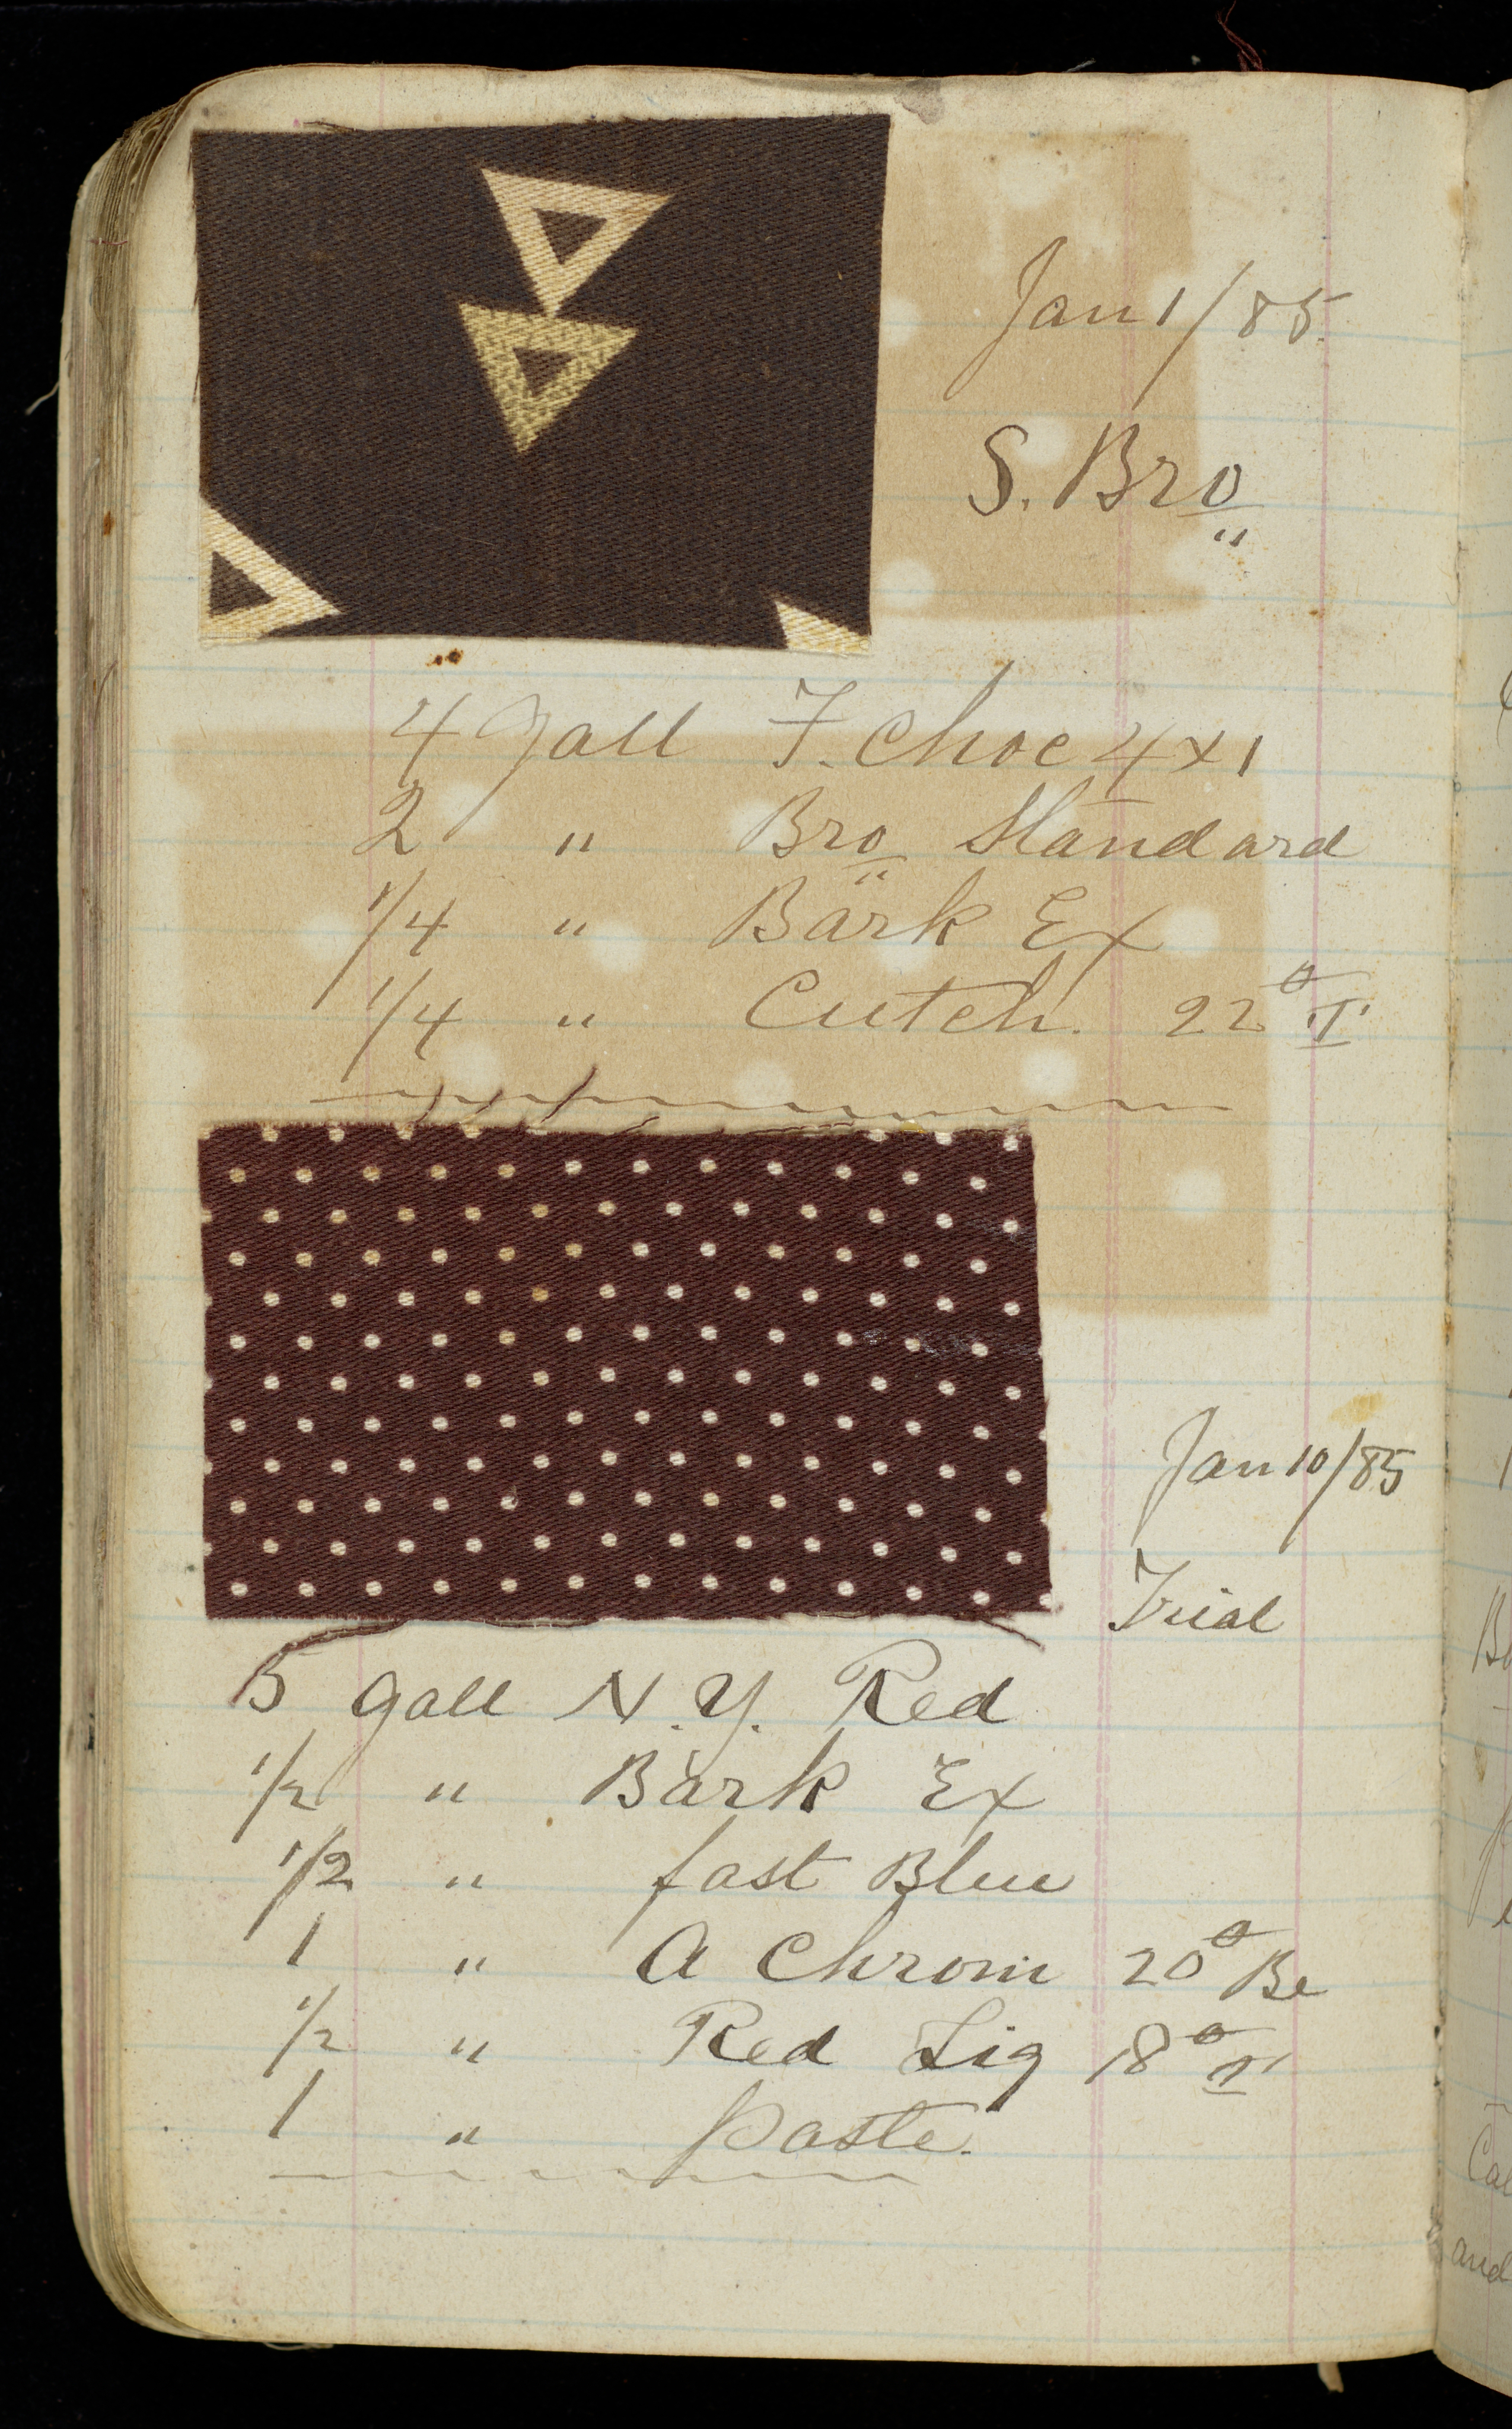 Jan 1/85
S. Bro
4 Gall F. Choc 4x1
2 " Bro Standard
1/4 " Bark Ex
1/4 " Cutch. 22° T
Jan 10/85
Trial
5 Gall N.Y. Red
1/2 " Bark Ex
1/2 " fast Blue
1 " A Chrom 20° Be
1/2 " Red Liq 18° T
1 " Paste.
and